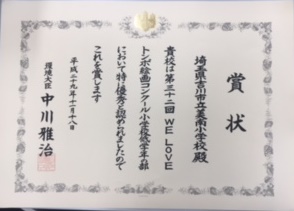 賞状
埼玉県吉川市立美南小学校殿
貴校は第三十二回 WE LOVE
トンボ絵画コンクール小学校低学年の部
において特に優秀と認められましたので
これを賞します
平成二十九年十一月十八日
環境大臣 中川雅治